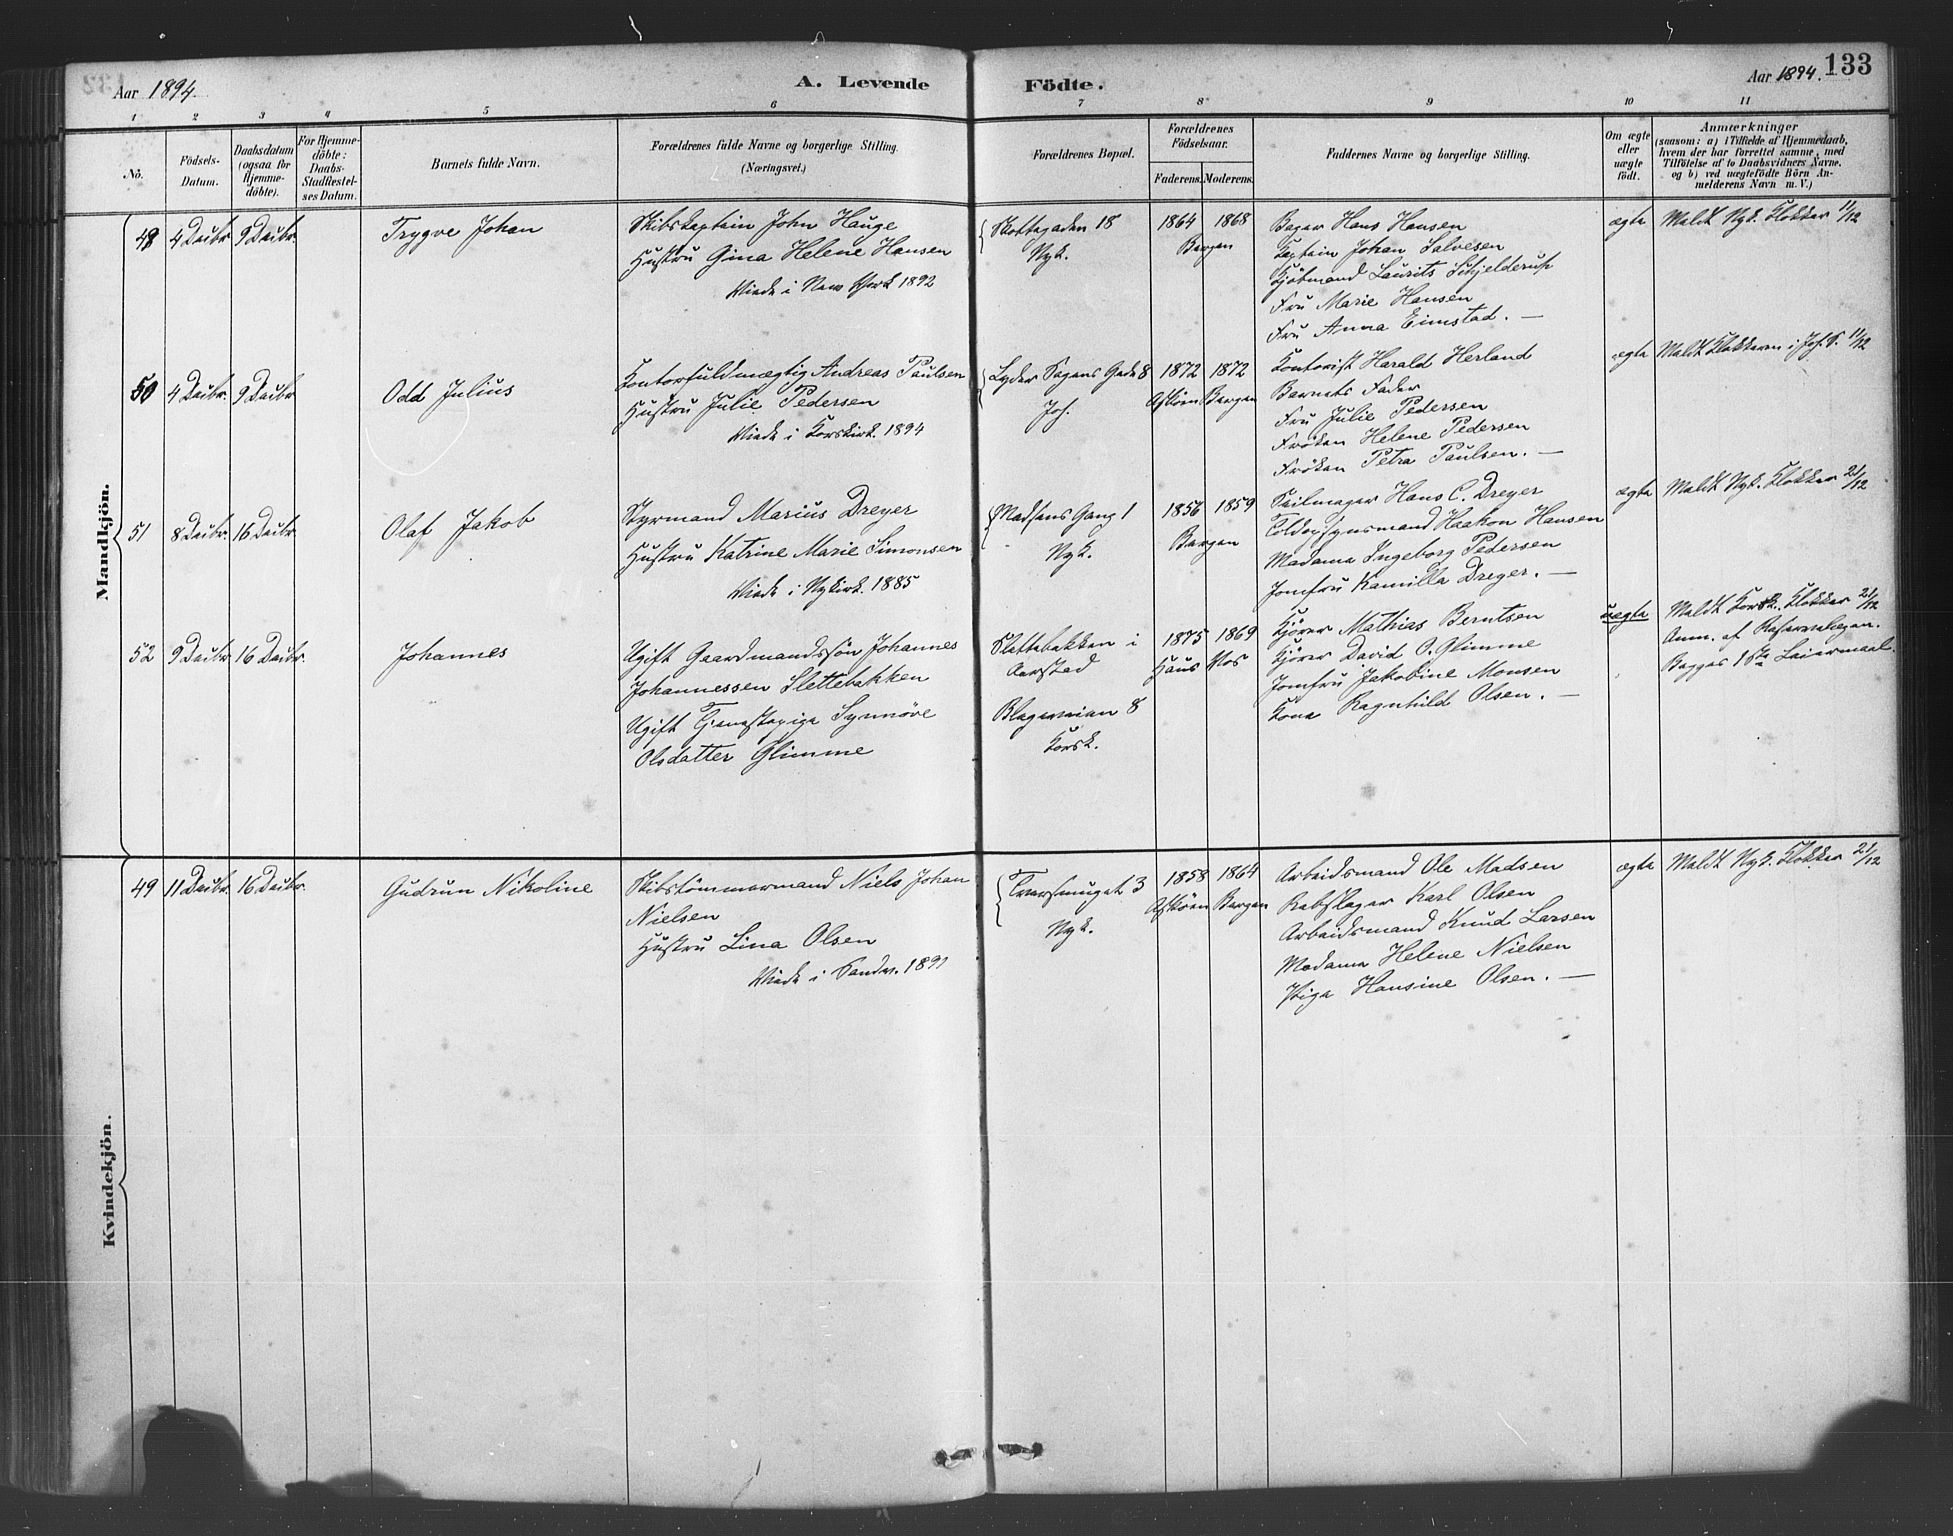 Aar 1894.
A. Levende Födte.
Aar 1894. 133
1 2 3 4 5 6 7 8 9 10 11
No.
Födsels-Datum.
Daabsdatum (ogsaa for Hjemme-döbte).
For Hjemme-döbte: Daabs-Stadfæstel-ses Datum.
Barnets fulde Navn.
Forældrenes fulde Navne og borgerlige Stilling. (Næringsvei.)
Forældrenes Bopæl.
Forældrenes Födselsaar.
Faderens. Moderens.
Faddernes Navne og borgerlige Stilling.
Om ægte eller uægte födt.
Anmærkninger
(saasom: a) i Tilfælde af Hjemmedaab, hvem der har forrettet samme, med Tilföielse af to Daabsvidners Navne, og b) ved uægtefödte Börn An-melderens Navn m. V.)
Mandkjön.
49 4 Decbr. 9 Decbr. Trygve Johan
Skibskaptein John Hauge
Hustru Gina Helene Hansen
Viede i New York 1892
Skottegaden 18
Nyk.
1864 1868
Bergen
Bager Hans Hansen
Kaptein Johan Salvesen
Kjötmand Laurits Schjelderup
Fru Marie Hansen
Fru Anna Eimstad. —
ægte
Meldt Nyk. Klokker 11/12
50 4 Decbr. 9 Decbr Odd Julius
Kontorfuldmægtig Andreas Paulsen
Hustru Julie Pedersen
Viede i Korskirk. 1894
Lyder Sagens Gade 8
Joh.
1872 1872
Asköen Bergen
Kontorist Harald Herland
Barnets Fader
Fru Julie Pedersen
Fröken Helene Pedersen
Fröken Petra Paulsen. —
ægte
Meldt Klokkeren i Joh. S. 11/12
51 8 Decbr. 16 Decbr. Olaf Jakob
Styrmand Marius Dreyer
Hustru Katrine Marie Simonsen
Viede i Nykirk. 1885
Madsens Gang 1
Nyk.
1856 1859
Bergen
Seilmager Hans C. Dreyer
Toldopsynsmand Haakon Hansen
Madame Ingeborg Pedersen
Jomfru Kamilla Dreyer. —
ægte
Meldt Nyk. Klokker 21/12
52 9 Decbr. 16 Decbr. Johannes
Ugift Gaardmandssön Johannes
Johannessen Slettebakken
Ugift Tjenestepige Synnöve
Olsdatter Glimme
Slettebakken i
Aarstad
Blegerveien 8
Korsk.
1875 1869
Haus Vos
Kjörer Mathias Berntsen
Kjörer David O. Glimme
Jomfru Jakobine Monsen
Kone Ragnhild Olsen. —
uægte
Meldt Korsk. Klokker 21/12
Anm. af
Begges 1ste Leiermaal.
Kvindekjön.
49 11 Decbr. 16 Decbr. Gudrun Nikoline
Skibstömmermand Niels Johan
Nielsen
Hustru Lina Olsen
Viede i Sandv. 1891
Tversmuget 3
Nyk.
1858 1864
Asköen Bergen
Arbeidsmand Ole Madsen
Rebslager Karl Olsen
Arbeidsmand Knud Larsen
Madame Helene Nielsen
Pige Hansine Olsen. —
ægte
Meldt Nyk. Klokker 21/12